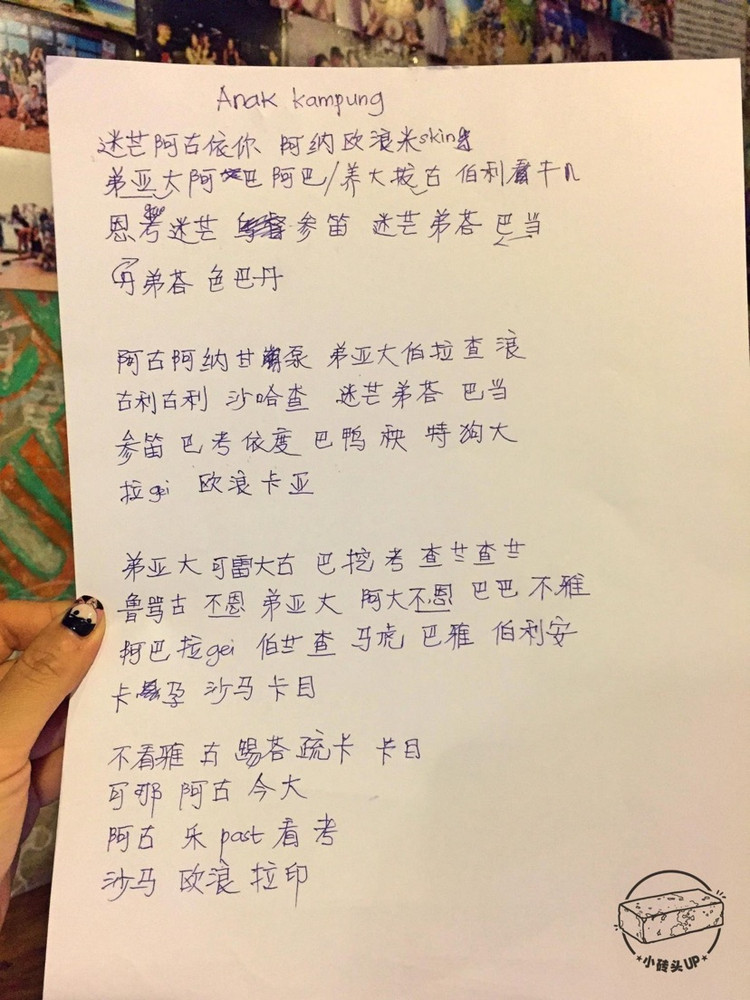 Anak kampung
迷芒阿古依你 阿纳欧浪米skin
弟亚大阿巴阿巴/养大拢古 伯利看牛n
恩考迷芒 参笛 迷芒弟荅 巴当
丹弟荅 色巴丹
阿古阿纳甘崩泵 弟亚大伯拉查浪
古利古利 沙哈查 迷芒弟荅 巴当
参笛 巴考依度 巴鸭 秧 特狗大
拉gei 欧浪卡亚
弟亚大可雷大古 巴挖考 查兰查兰
鲁骂古 不恩 弟亚大 阿大不恩 巴巴 不雅
阿巴拉gei 伯兰查 马虎 巴雅 伯利安
卡孕 沙马卡目
不看雅 古 踢荅疏卡 卡目
可那 阿古 今大
阿古 乐 past 看考
沙马 欧浪 拉印
小砖头UP